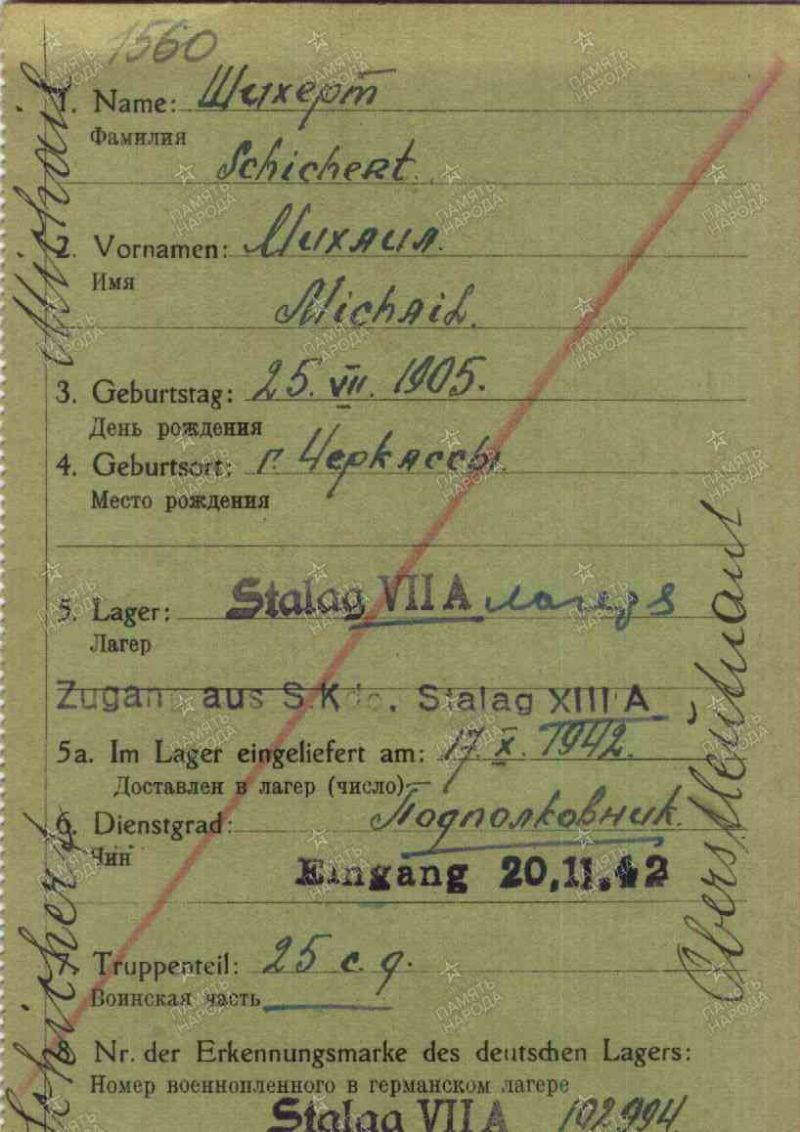 1560
1. Name: Шихерт
Фамилия
Schichert.
2. Vornamen: Михаил.
Имя
Michail.
3. Geburtstag: 25. VII. 1905.
День рождения
4. Geburtsort: г. Черкассы.
Место рождения
5. Lager: Stalag VII A лагерь
Лагер
Zugang aus S.Kdo. Stalag XIII A
5a. Im Lager eingeliefert am: 17. X. 1942.
Доставлен в лагер (число)
6. Dienstgrad: Подполковник.
Чин
Eingang 20.11.42
7. Truppenteil: 25 с. д.
Воинская часть
8. Nr. der Erkennungsmarke des deutschen Lagers:
Номер военнопленного в германском лагере
Stalag VII A 102994
Schichert Michail
Oberstleutnant
ПАМЯТЬ НАРОДА